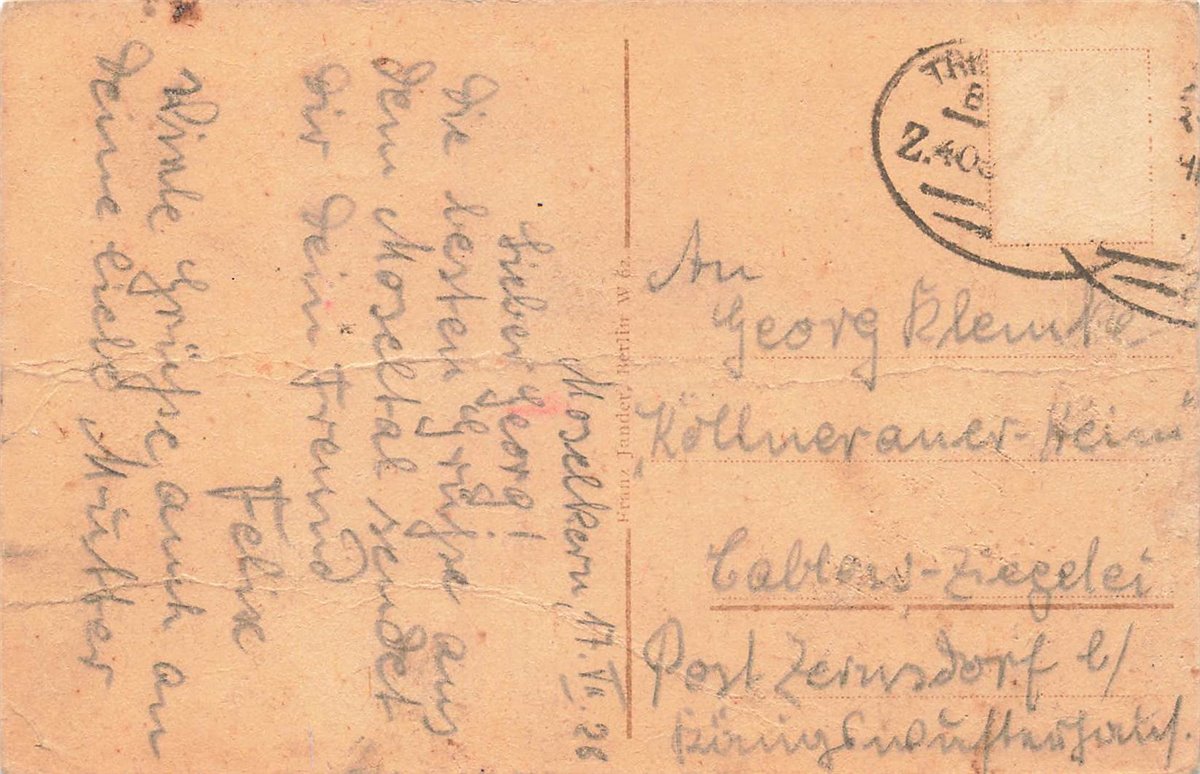 Moselkern, 17.VII.26
Lieber Georg!
Die besten Grüße aus
dem Moseltal sendet
Dir Dein Freund
Felix
Viele Grüße auch an
Deine liebe Mutter
Franz Jander, Berlin W 62
2.40
An
Georg Klemke
"Köllnerauer-Heim"
Cablow-Ziegelei
Post Zernsdorf b/
Königswusterhaus.